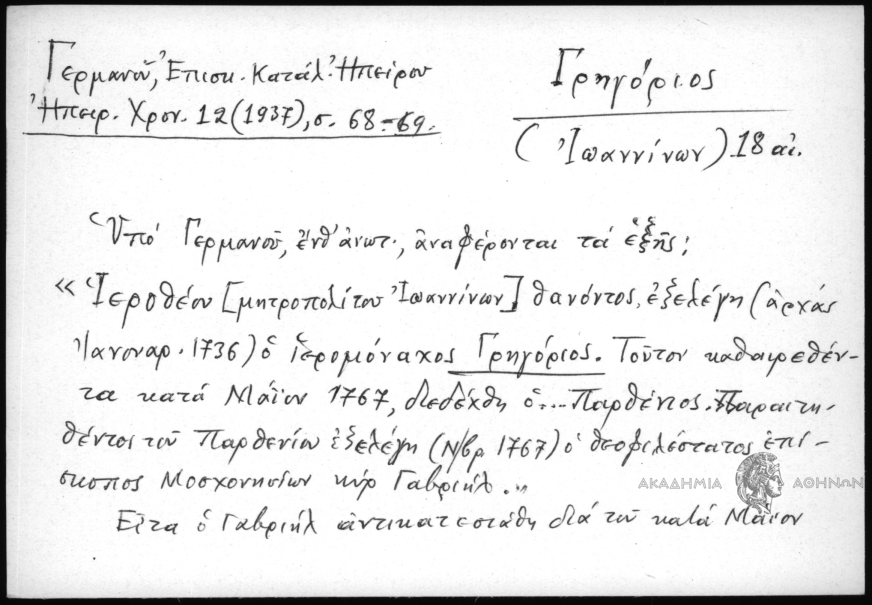 Γερμανοῦ, Ἐπισκ. Κατάλ. Ἠπείρου
Ἠπειρ. Χρον. 12 (1937), σ. 68-69.
Γρηγόριος
(Ἰωαννίνων) 18 αἰ.
Ὑπό Γερμανοῦ, ἔνθ' ἀνωτ., ἀναφέρονται τά ἑξῆς:
«Ἱεροθέου [μητροπολίτου Ἰωαννίνων] θανόντος, ἐξελέγη (ἀρχάς
Ἰανουαρ. 1736) ὁ ἱερομόναχος Γρηγόριος. Τοῦτον καθαιρεθέν-
τα κατά Μάϊον 1767, διεδέχθη ὁ... Παρθένιος. Παραιτη-
θέντος τοῦ Παρθενίου ἐξελέγη (Ν/βρ 1767) ὁ θεοφιλέστατος ἐπί-
σκοπος Μοσχονησίων κύρ Γαβριήλ.»
Εἶτα ὁ Γαβριήλ ἀντικατεστάθη διά τοῦ κατά Μάϊον
ΑΚΑΔΗΜΙΑ ΑΘΗΝΩΝ